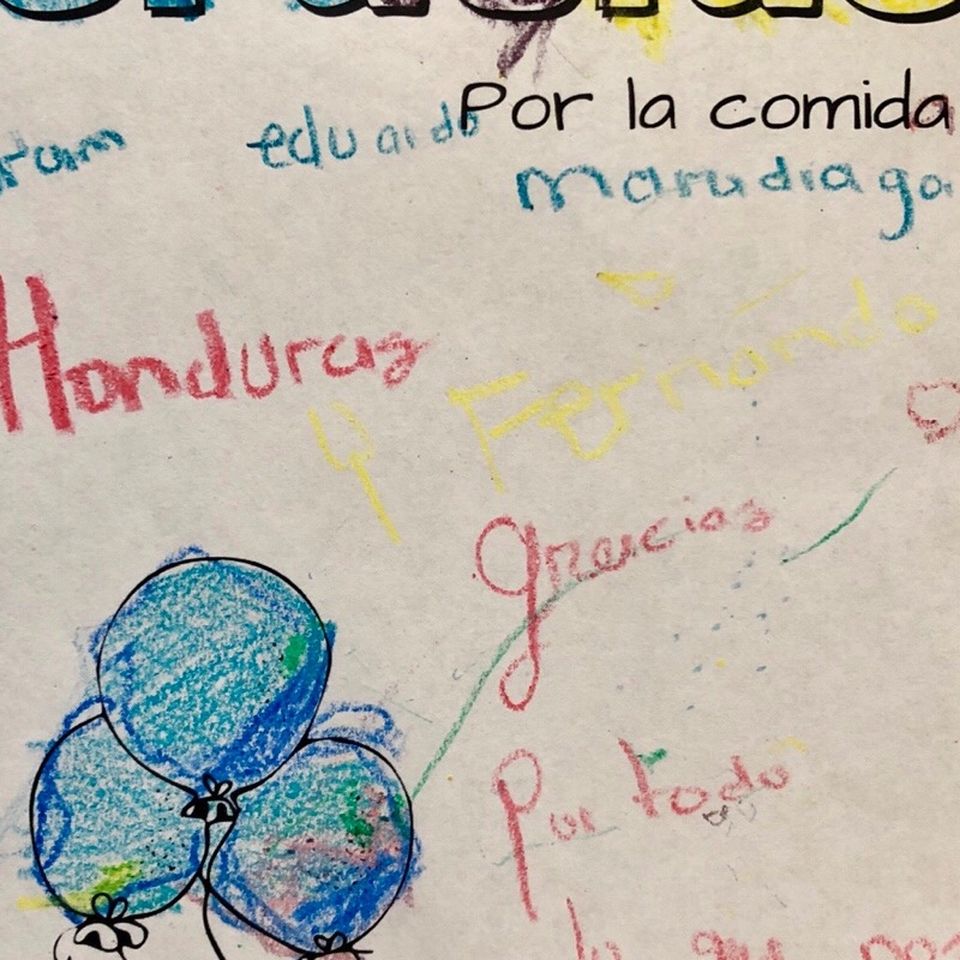 Por la comida
eduardo
marudiaga
Honduras
y Fernando
gracias
Por todo
lo que nos